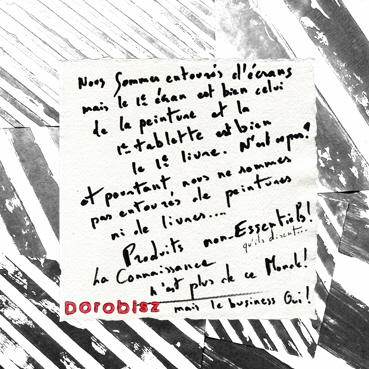 Nous sommes entourés d'écrans
mais le 1er écran est bien celui
de la peinture et la
1re tablette est bien
le 1er livre. N'est ce pas?
et pourtant nous ne sommes
pas entourés de peintures
ni de livres...
Produits non-Essentiels!
qu'ils disent...
La Connaissance
n'est plus de ce Monde!
mais le business Oui!
DOROBISZ